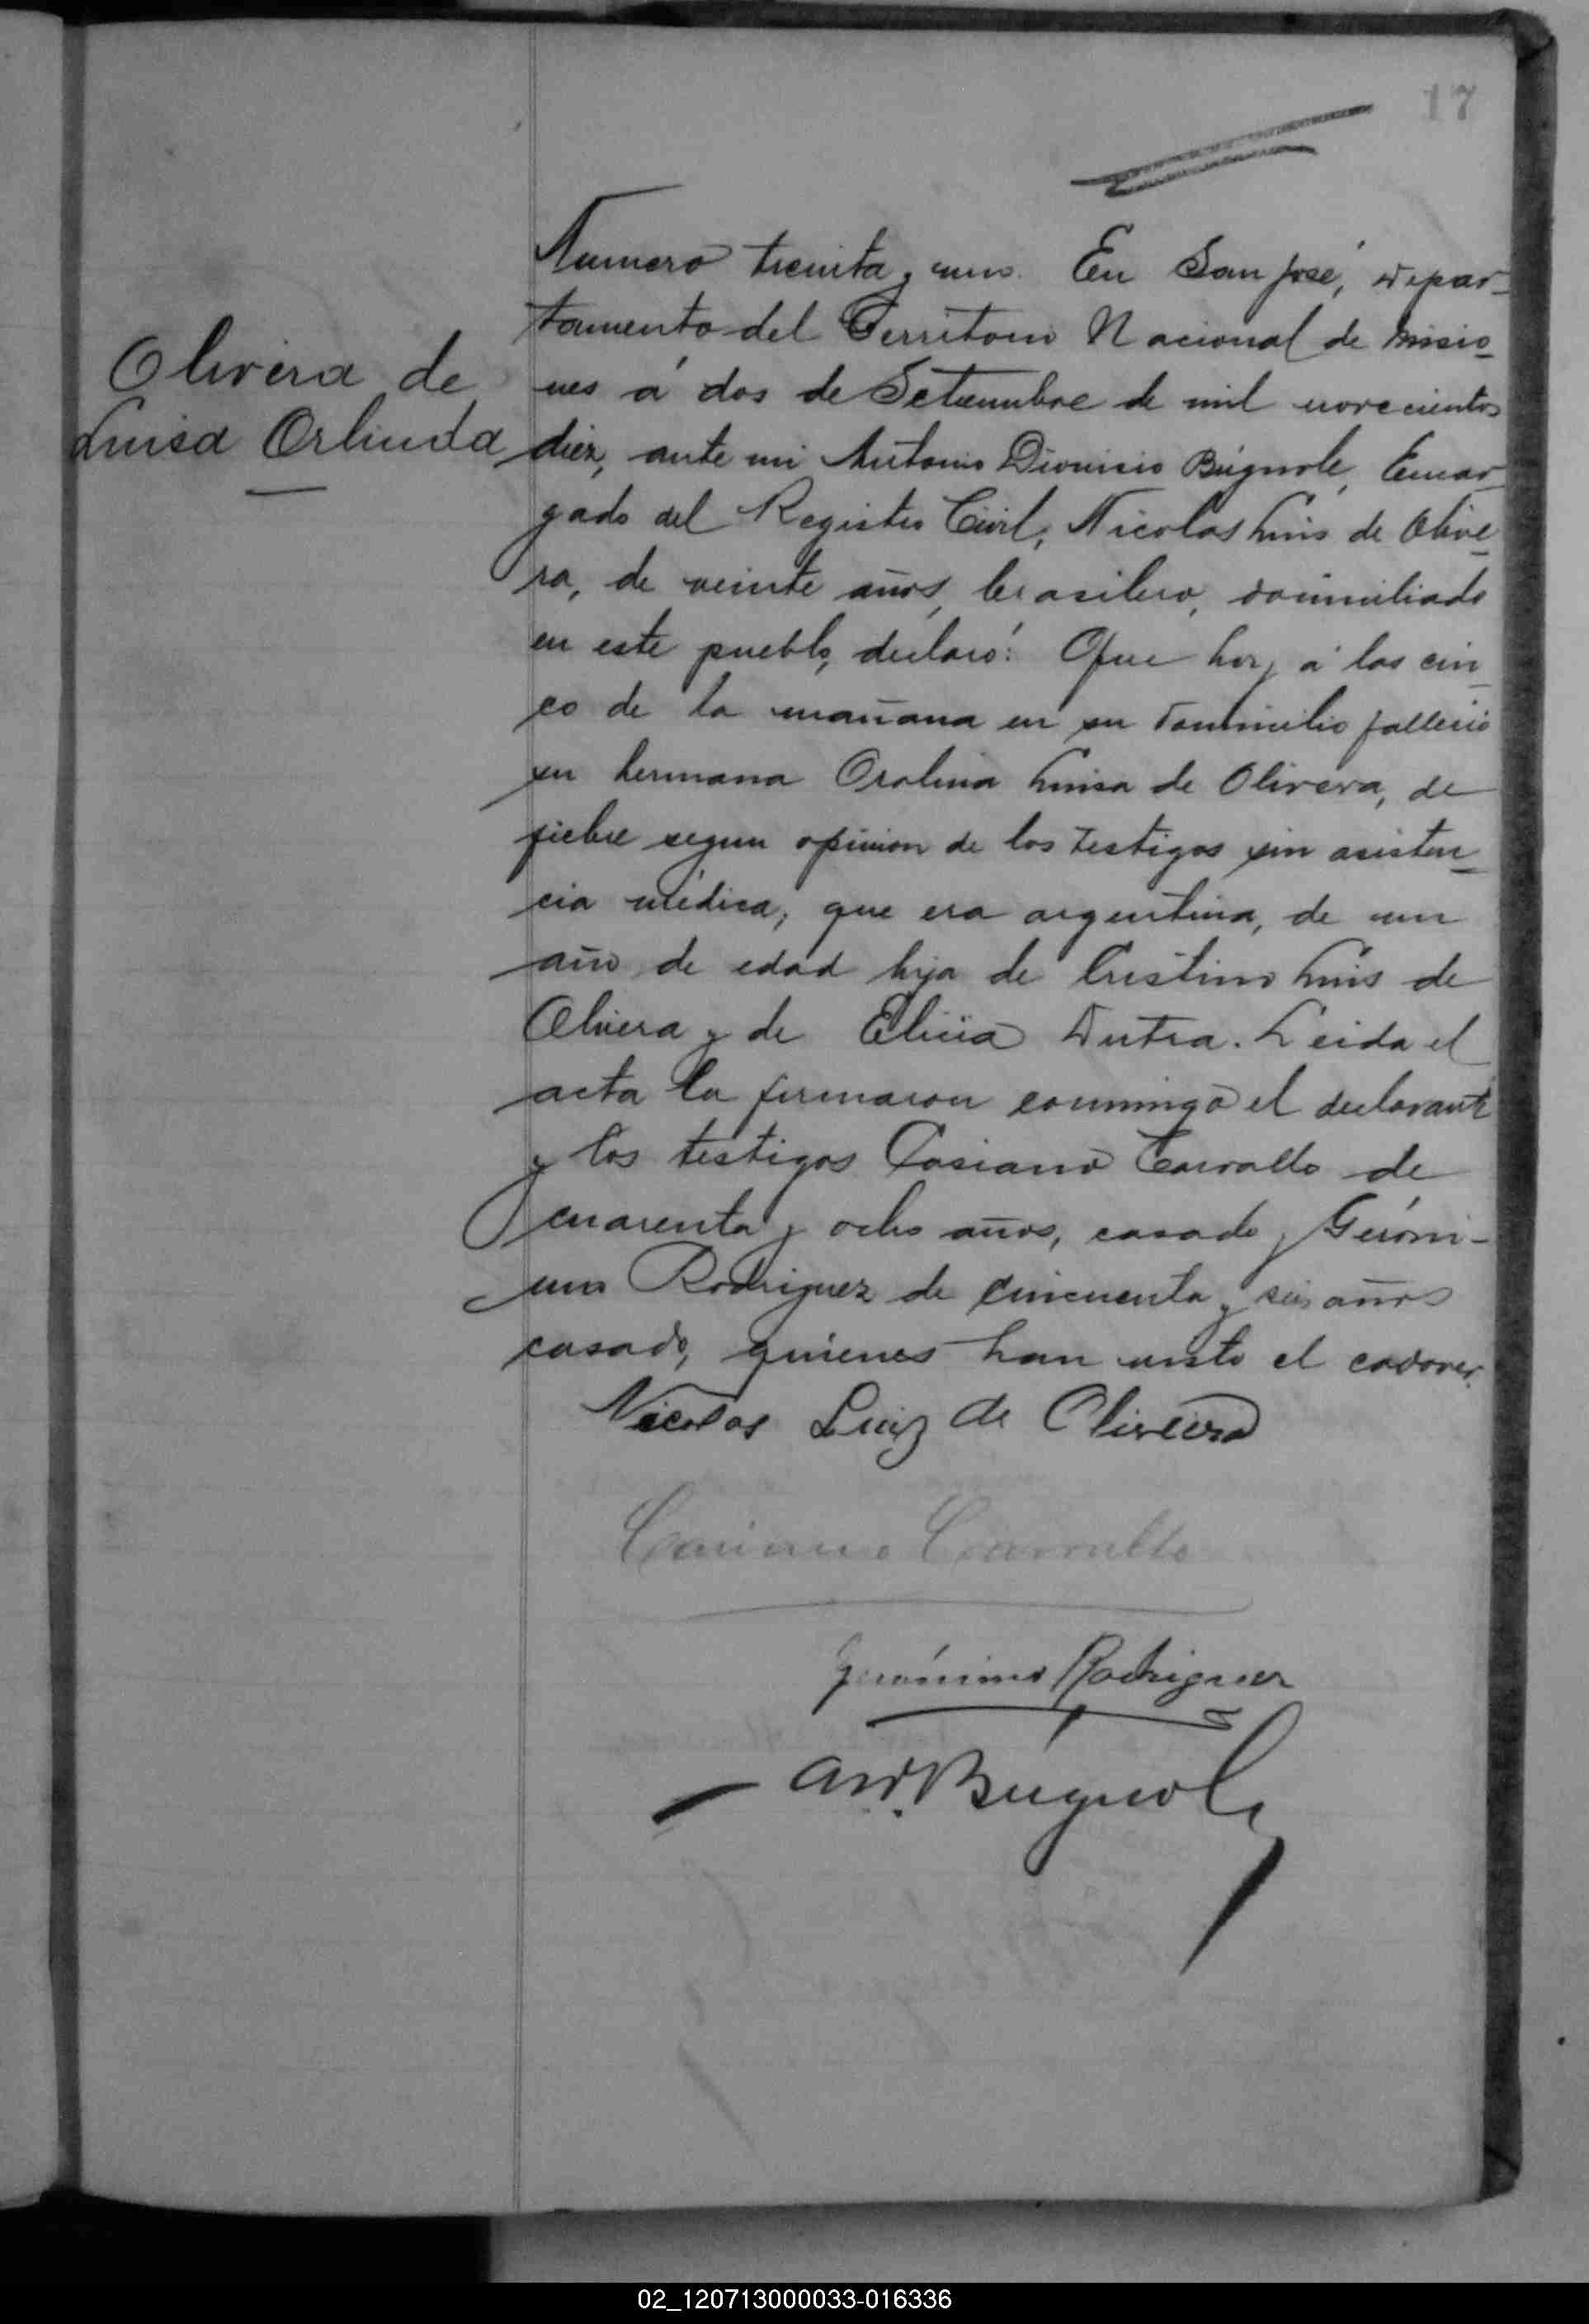 17
Olivera de
Luisa Orlinda
Numero treinta y uno. En San José, Depar-
tamento del Territorio Nacional de Misio-
nes á dos de Setiembre de mil novecientos
diez, ante mi Antonio Dionisio Búgnole, Encar-
gado del Registro Civil, Nicolas Luis de Olive-
ra, de veinte años, brasilero, domiciliado
en este pueblo, declaró: Que hoy á las cin-
co de la mañana en su domicilio falleció
su hermana Orolina Luisa de Olivera, de
fiebre segun opinion de los testigos sin asisten-
cia médica; que era argentina, de un
año de edad hija de Cristino Luis de
Olivera y de Elicia Dutra. Leida el
acta la firmaron conmigo el declarante
y los testigos Casiano Carvallo de
cuarenta y ocho años, casado y Geróni-
mo Rodriguez de cincuenta y seis años
casado, quienes han visto el cadaver.
Nicolas Luiz de Oliveira
Casiano Carvallo
Gerónimo Rodriguez
Búgnole
02_120713000033-016336